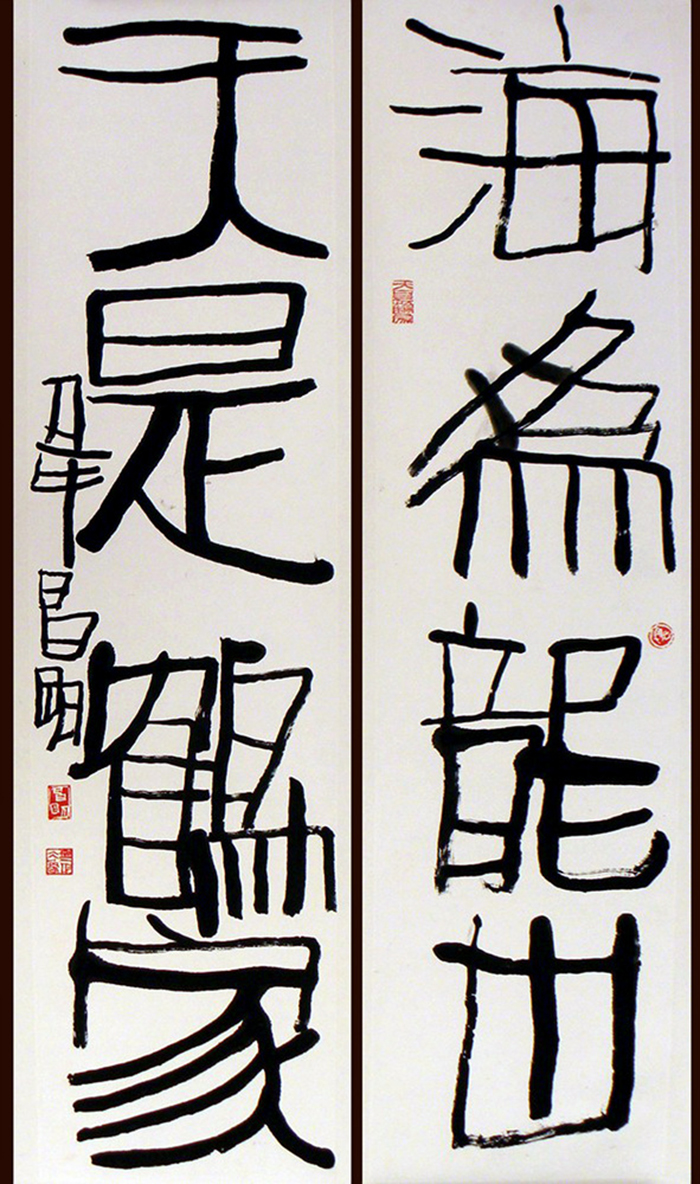 海為龍世
天是鶴家
丑年昌明